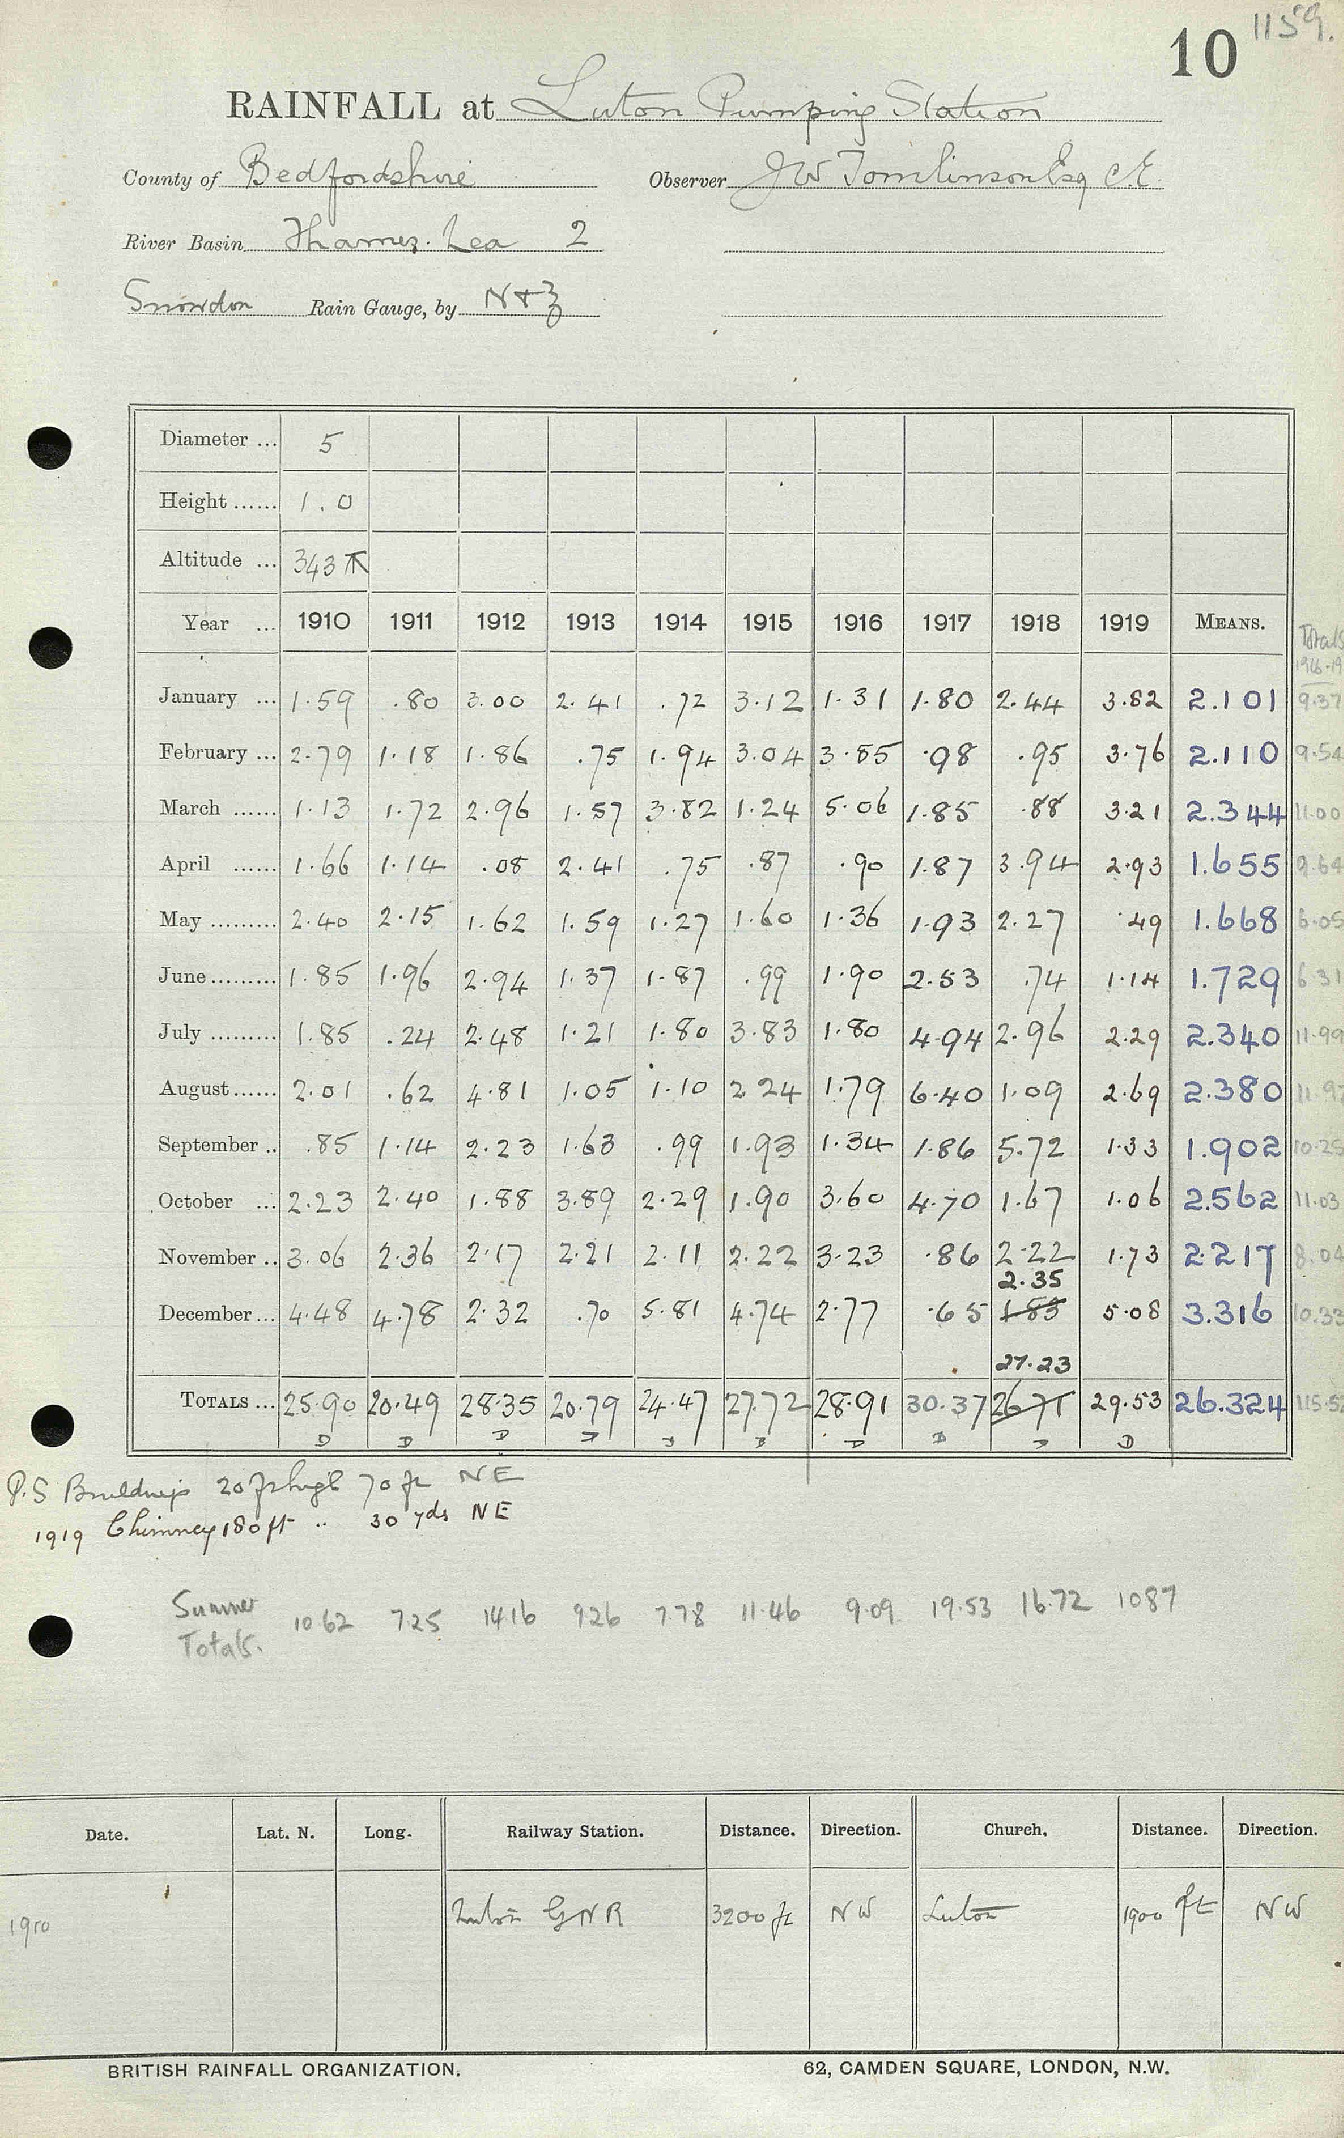 1159.
10
RAINFALL at Luton Pumping Station
County of Bedfordshire Observer J W Tomlinson Esq C.E.
River Basin Thames. Lea 2
Snowdon Rain Gauge, by N+Z
Diameter ... 5
Height ...... 1.0
Altitude ... 343
Year ... 1910 1911 1912 1913 1914 1915 1916 1917 1918 1919 MEANS. Totals 1916-19
January ... 1.59 .80 3.00 2.41 .72 3.12 1.31 1.80 2.44 3.82 2.101 9.37
February ... 2.79 1.18 1.86 .75 1.94 3.04 3.85 .98 .95 3.76 2.110 9.54
March ...... 1.13 1.72 2.96 1.57 3.82 1.24 5.06 1.85 .88 3.21 2.344 11.00
April ...... 1.66 1.14 .08 2.41 .75 .87 .90 1.87 3.94 2.93 1.655 9.64
May ......... 2.40 2.15 1.62 1.59 1.27 1.60 1.36 1.93 2.27 .49 1.668 6.05
June ......... 1.85 1.96 2.94 1.37 1.87 .99 1.90 2.53 .74 1.14 1.729 6.31
July ......... 1.85 .24 2.48 1.21 1.80 3.83 1.80 4.94 2.96 2.29 2.340 11.99
August ...... 2.01 .62 4.81 1.05 1.10 2.24 1.79 6.40 1.09 2.69 2.380 11.97
September .. .85 1.14 2.23 1.63 .99 1.93 1.34 1.86 5.72 1.33 1.902 10.25
October ... 2.23 2.40 1.88 3.89 2.29 1.90 3.60 4.70 1.67 1.06 2.562 11.03
November .. 3.06 2.36 2.17 2.21 2.11 2.22 3.23 .86 2.22 1.73 2.217 8.04
2.35
December ... 4.48 4.78 2.32 .70 5.81 4.74 2.77 .65 1.83 5.08 3.316 10.33
27.23
TOTALS ... 25.90 20.49 28.35 20.79 24.47 27.72 28.91 30.37 26.71 29.53 26.324 115.52
D D D D D D D D D D
P.S Buildings 20 ft high 70 ft NE
1919 Chimney 180 ft .. 30 yds NE
Summer Totals. 10.62 7.25 14.16 9.26 7.78 11.46 9.09 19.53 16.72 10.87
Date. Lat. N. Long. Railway Station. Distance. Direction. Church. Distance. Direction.
1910 Luton GNR 3200 ft NW Luton 1900 ft NW
BRITISH RAINFALL ORGANIZATION. 62, CAMDEN SQUARE, LONDON, N.W.